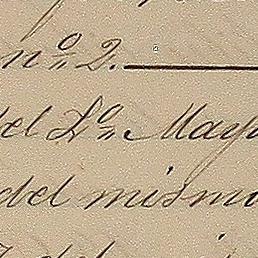 nº 2.
del Lº May
del mismo
del